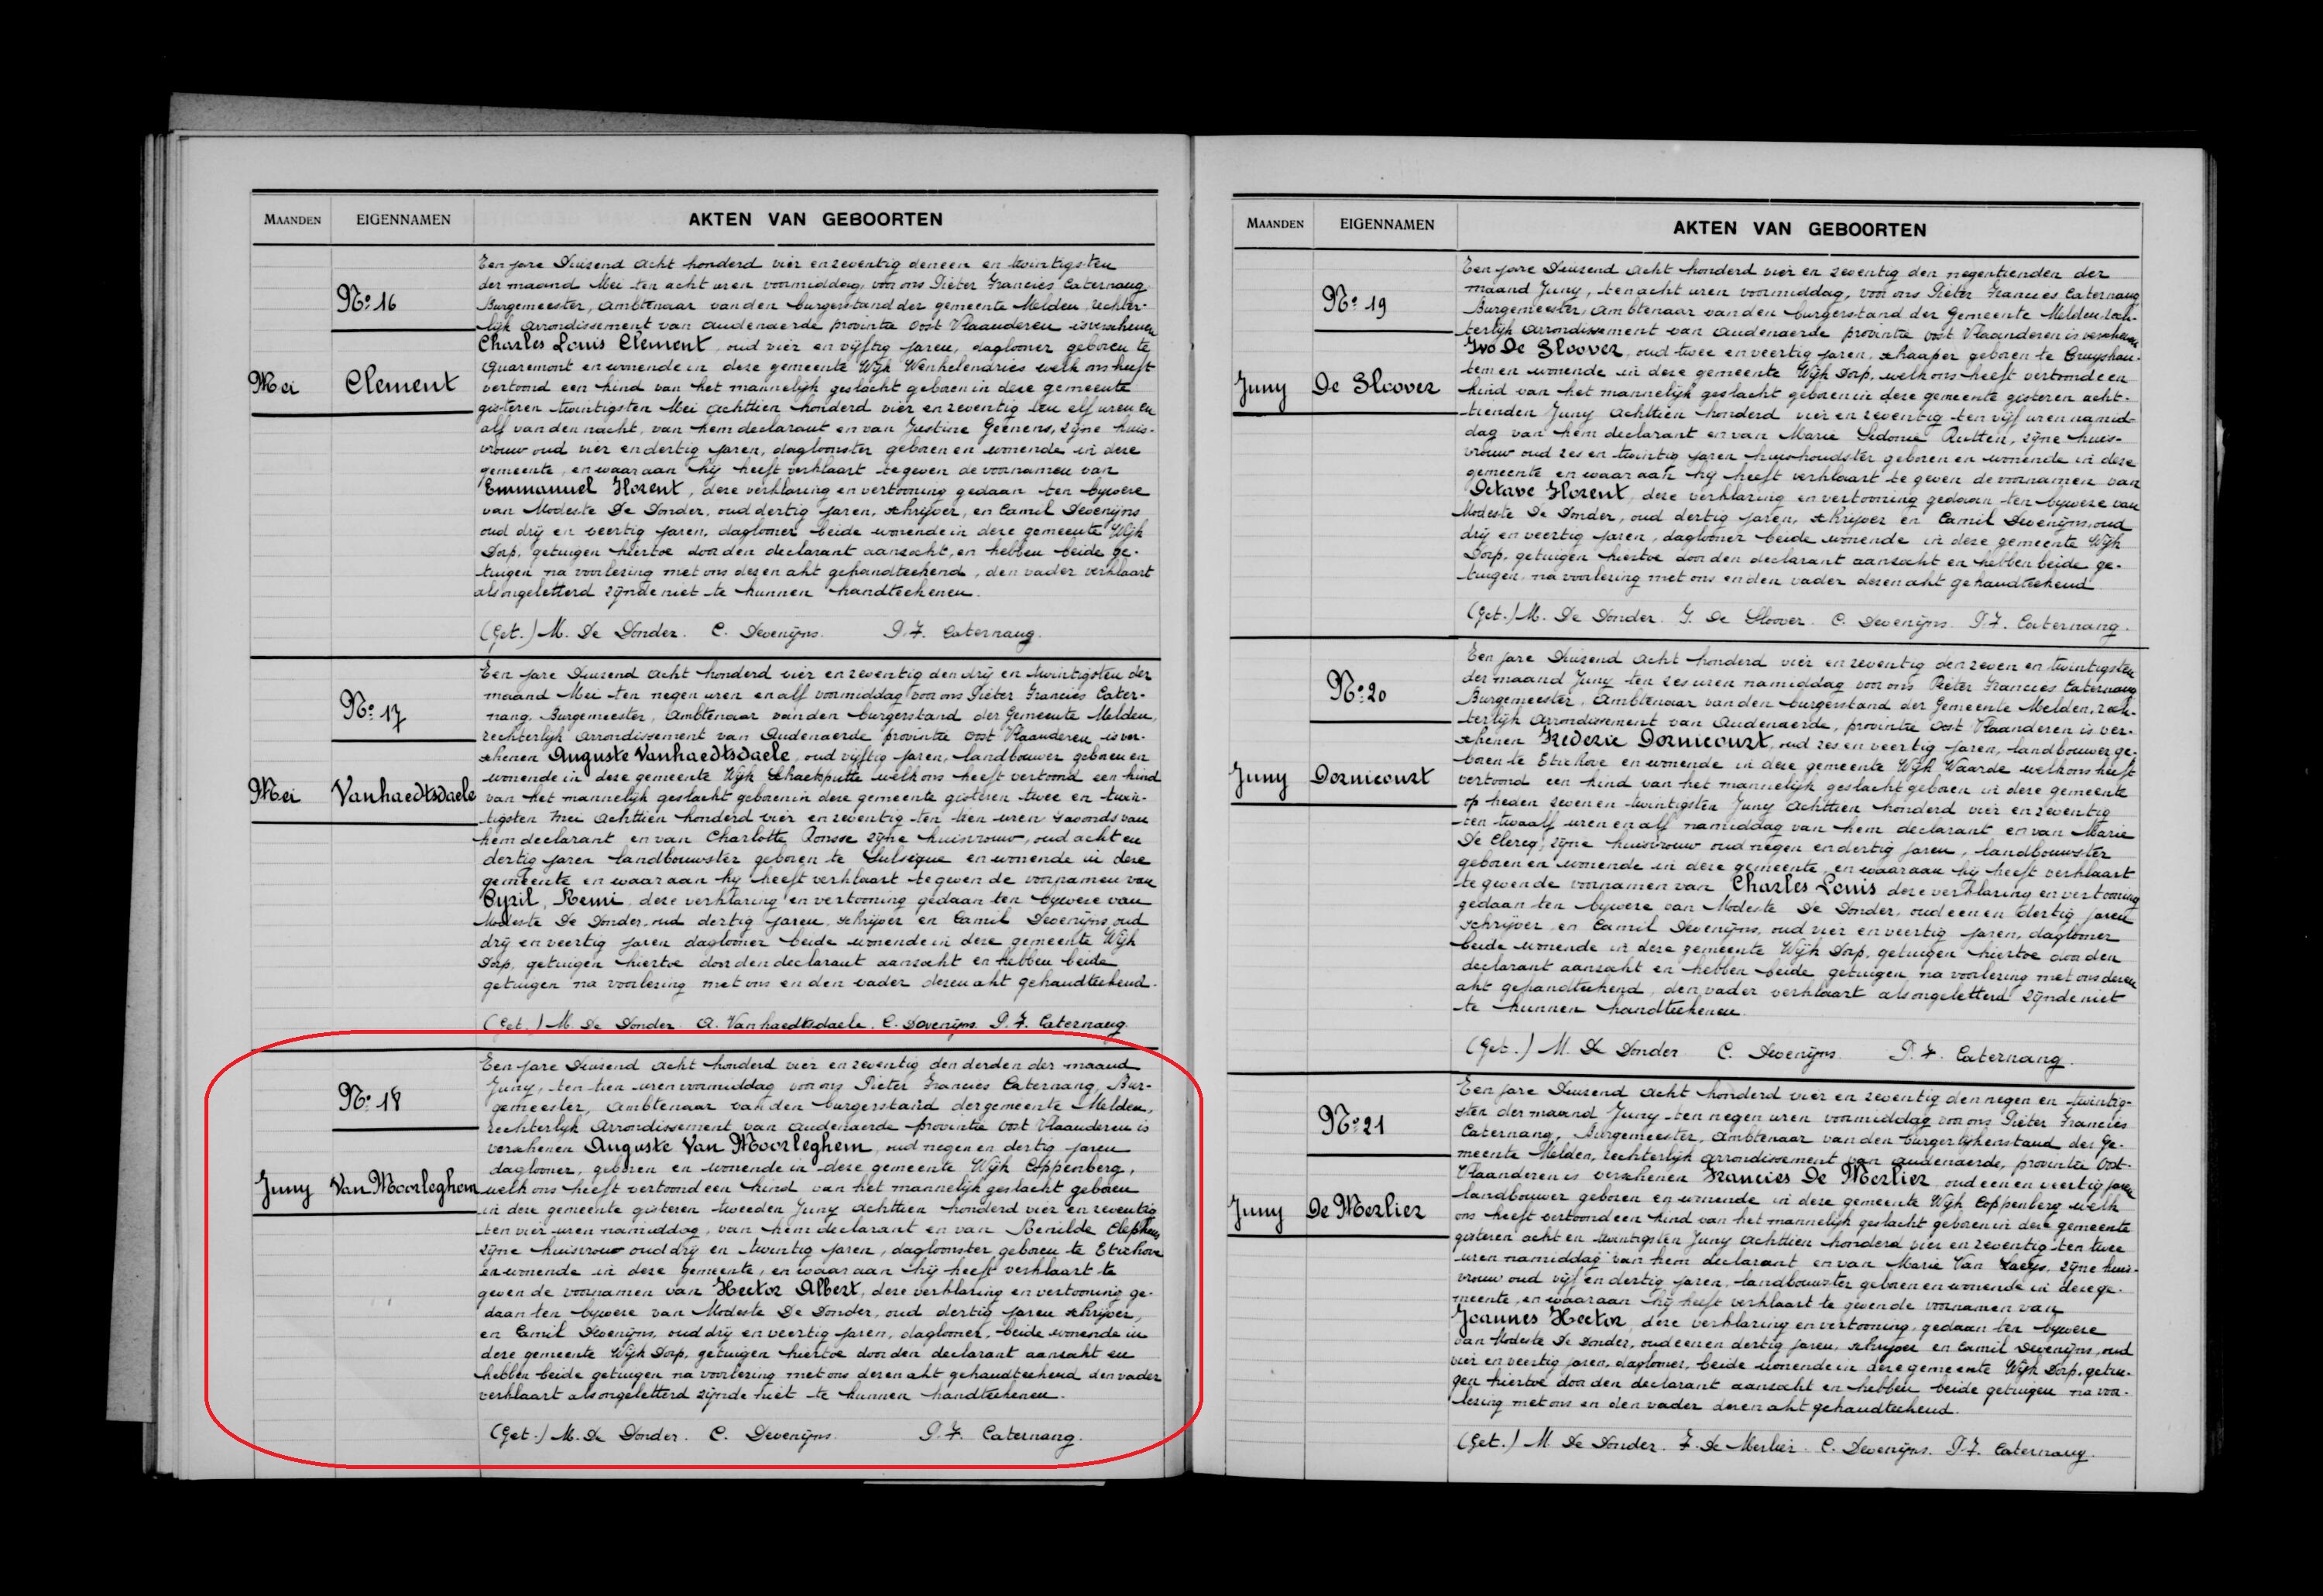 MAANDEN EIGENNAMEN AKTEN VAN GEBOORTEN
Nº 16
Mei Clement
Een jare Duizend acht honderd vier en zeventig den een en twintigsten
der maand Mei ten acht uren voormiddag, voor ons Pieter Francies Caternang
Burgemeester, Ambtenaar van den burgerstand der gemeente Melden, rechter-
lijk arrondissement van Audenaerde provintie Oost Vlaanderen is verschenen
Charles Louis Clement, oud vier en vijftig jaren, daglooner geboren te
Quaremont en wonende in deze gemeente Wijk Wenkelendries welk ons heeft
vertoond een kind van het mannelijk geslacht geboren in deze gemeente
gisteren twintigsten Mei achttien honderd vier en zeventig ten elf uren en
alf van den nacht, van hem declarant en van Justine Geenens, zijne huis-
vrouw oud vier en dertig jaren, daglooster geboren en wonende in deze
gemeente, en waaraan hij heeft verklaart te geven de voornamen van
Emmanuel Florent, deze verklaring en vertooning gedaan ten bywese
van Modeste De Donder, oud dertig jaren, schrijver, en Camil Devenijns
oud drij en veertig jaren, daglooner beide wonende in deze gemeente Wijk
Dorp, getuigen hiertoe door den declarant aanzocht, en hebben beide ge-
tuigen na voorlezing met ons dezen akt gehandteekend, den vader verklaart
als ongeletterd zijnde niet te kunnen handteekenen.
(Get.) M. De Donder. C. Devenijns. P. F. Caternang.
Nº 17
Mei Vanhaedtsdaele
Een jare Duizend acht honderd vier en zeventig den drij en twintigsten der
maand Mei ten negen uren en alf voormiddag voor ons Pieter Francies Cater-
nang, Burgemeester, Ambtenaar van den burgerstand der Gemeente Melden,
rechterlijk arrondissement van Audenaerde provintie Oost Vlaanderen is ver-
schenen Auguste Vanhaedtsdaele, oud vijftig jaren, landbouwer geboren en
wonende in deze gemeente Wijk Schaekputte welk ons heeft vertoond een kind
van het mannelijk geslacht geboren in deze gemeente gisteren twee en twin-
tigsten Mei achttien honderd vier en zeventig ten tien uren s'avonds van
hem declarant en van Charlotte Ronsse zijne huisvrouw, oud acht en
dertig jaren landbouwster geboren te Sulseque en wonende in deze
gemeente en waaraan hij heeft verklaart te geven de voornamen van
Cyril, Remi, deze verklaring en vertooning gedaan ten bywese van
Modeste De Donder, oud dertig jaren, schrijver en Camil Devenijns, oud
drij en veertig jaren daglooner beide wonende in deze gemeente Wijk
Dorp, getuigen hiertoe door den declarant aanzocht en hebben beide
getuigen na voorlezing met ons en den vader dezen akt gehandteekend.
(Get.) M. De Donder. A. Vanhaedtsdaele. C. Devenijns. P. F. Caternang.
Nº 18
Juny Van Moorleghem
Een jare Duizend acht honderd vier en zeventig den derden der maand
Juny, ten tien uren voormiddag voor ons Pieter Francies Caternang, Bur-
gemeester, Ambtenaar van den burgerstand der gemeente Melden,
rechterlijk arrondissement van Audenaerde provintie Oost Vlaanderen is
verschenen Auguste Van Moorleghem, oud negen en dertig jaren
daglooner, geboren en wonende in deze gemeente Wijk Coppenberg,
welk ons heeft vertoond een kind van het mannelijk geslacht geboren
in deze gemeente gisteren tweeden Juny achttien honderd vier en zeventig
ten vier uren namiddag, van hem declarant en van Benilde Clephem
zijne huisvrouw oud drij en twintig jaren, daglooster geboren te Etichove
en wonende in deze gemeente, en waaraan hij heeft verklaart te
geven de voornamen van Hector Albert, deze verklaring en vertooning ge-
daan ten bywese van Modeste De Donder, oud dertig jaren schrijver,
en Camil Devenijns, oud drij en veertig jaren, daglooner, beide wonende in
deze gemeente Wijk Dorp, getuigen hiertoe door den declarant aanzocht en
hebben beide getuigen na voorlezing met ons dezen akt gehandteekend den vader
verklaart als ongeletterd zijnde niet te kunnen handteekenen.
(Get.) M. De Donder. C. Devenijns. P. F. Caternang.
MAANDEN EIGENNAMEN AKTEN VAN GEBOORTEN
Nº 19
Juny De Sloover
Een jare Duizend acht honderd vier en zeventig den negentienden der
maand Juny, ten acht uren voormiddag, voor ons Pieter Francies Caternang
Burgemeester, Ambtenaar van den burgerstand der Gemeente Melden, rech-
terlijk arrondissement van Audenaerde provintie Oost Vlaanderen is verschenen
Ivo De Sloover, oud twee en veertig jaren, schaaper geboren te Cruyshau-
tem en wonende in deze gemeente Wijk Dorp, welk ons heeft vertoond een
kind van het mannelijk geslacht geboren in deze gemeente gisteren acht-
tienden Juny achttien honderd vier en zeventig ten vijf uren namid-
dag van hem declarant en van Marie Sidonie Rutten, zijne huis-
vrouw oud zes en twintig jaren huishoudster geboren en wonende in deze
gemeente en waaraan hij heeft verklaart te geven de voornamen van
Octave Florent, deze verklaring en vertooning gedaan ten bywese van
Modeste De Donder, oud dertig jaren, schrijver en Camil Devenijns, oud
drij en veertig jaren, daglooner beide wonende in deze gemeente Wijk
Dorp, getuigen hiertoe door den declarant aanzocht en hebben beide ge-
tuigen, na voorlezing met ons en den vader dezen akt gehandteekend
(Get.) M. De Donder. I. De Sloover. C. Devenijns. P. F. Caternang.
Nº 20
Juny Dornicourt
Een jare Duizend acht honderd vier en zeventig den zeven en twintigsten
der maand Juny ten zes uren namiddag voor ons Pieter Francies Caternang
Burgemeester, Ambtenaar van den burgerstand der Gemeente Melden, rech-
terlijk arrondissement van Audenaerde, provintie Oost Vlaanderen is ver-
schenen Frederic Dornicourt, oud zes en veertig jaren, landbouwer ge-
boren te Etichove en wonende in deze gemeente Wijk Waarde welk ons heeft
vertoond een kind van het mannelijk geslacht geboren in deze gemeente
op heden zeven en twintigsten Juny achttien honderd vier en zeventig
ten twaalf uren en alf namiddag van hem declarant en van Marie
De Clercq, zijne huisvrouw oud negen en dertig jaren, landbouwster
geboren en wonende in deze gemeente en waaraan hij heeft verklaart
te geven de voornamen van Charles Louis deze verklaring en vertooning
gedaan ten bywese van Modeste De Donder, oud een en dertig jaren
schrijver en Camil Devenijns, oud vier en veertig jaren, daglooner
beide wonende in deze gemeente Wijk Dorp, getuigen hiertoe door den
declarant aanzocht en hebben beide getuigen na voorlezing met ons dezen
akt gehandteekend, den vader verklaart als ongeletterd zijnde niet
te kunnen handteekenen.
(Get.) M. De Donder C. Devenijns. P. F. Caternang.
Nº 21
Juny De Merlier
Een jare Duizend acht honderd vier en zeventig den negen en twintig-
sten der maand Juny ten negen uren voormiddag voor ons Pieter Francies
Caternang, Burgemeester, Ambtenaar van den burgerlijkenstand der Ge-
meente Melden, rechterlijk arrondissement van Audenaerde, provintie Oost-
Vlaanderen is verschenen Francies De Merlier, oud een en veertig jaren
landbouwer geboren en wonende in deze gemeente Wijk Coppenberg welk
ons heeft vertoond een kind van het mannelijk geslacht geboren in deze gemeente
gisteren acht en twintigsten Juny achttien honderd vier en zeventig ten twee
uren namiddag van hem declarant en van Marie Van Laeys, zijne huis-
vrouw oud vijf en dertig jaren, landbouwster geboren en wonende in deze ge-
meente, en waaraan hij heeft verklaart te geven de voornamen van
Joannes Hector, deze verklaring en vertooning, gedaan ten bywese
van Modeste De Donder, oud een en dertig jaren, schrijver en Camil Devenijns, oud
vier en veertig jaren, daglooner, beide wonende in deze gemeente Wijk Dorp, getui-
gen hiertoe door den declarant aanzocht en hebben beide getuigen na voor-
lezing met ons en den vader dezen akt gehandteekend.
(Get.) M. De Donder. F. De Merlier. C. Devenijns. P. F. Caternang.